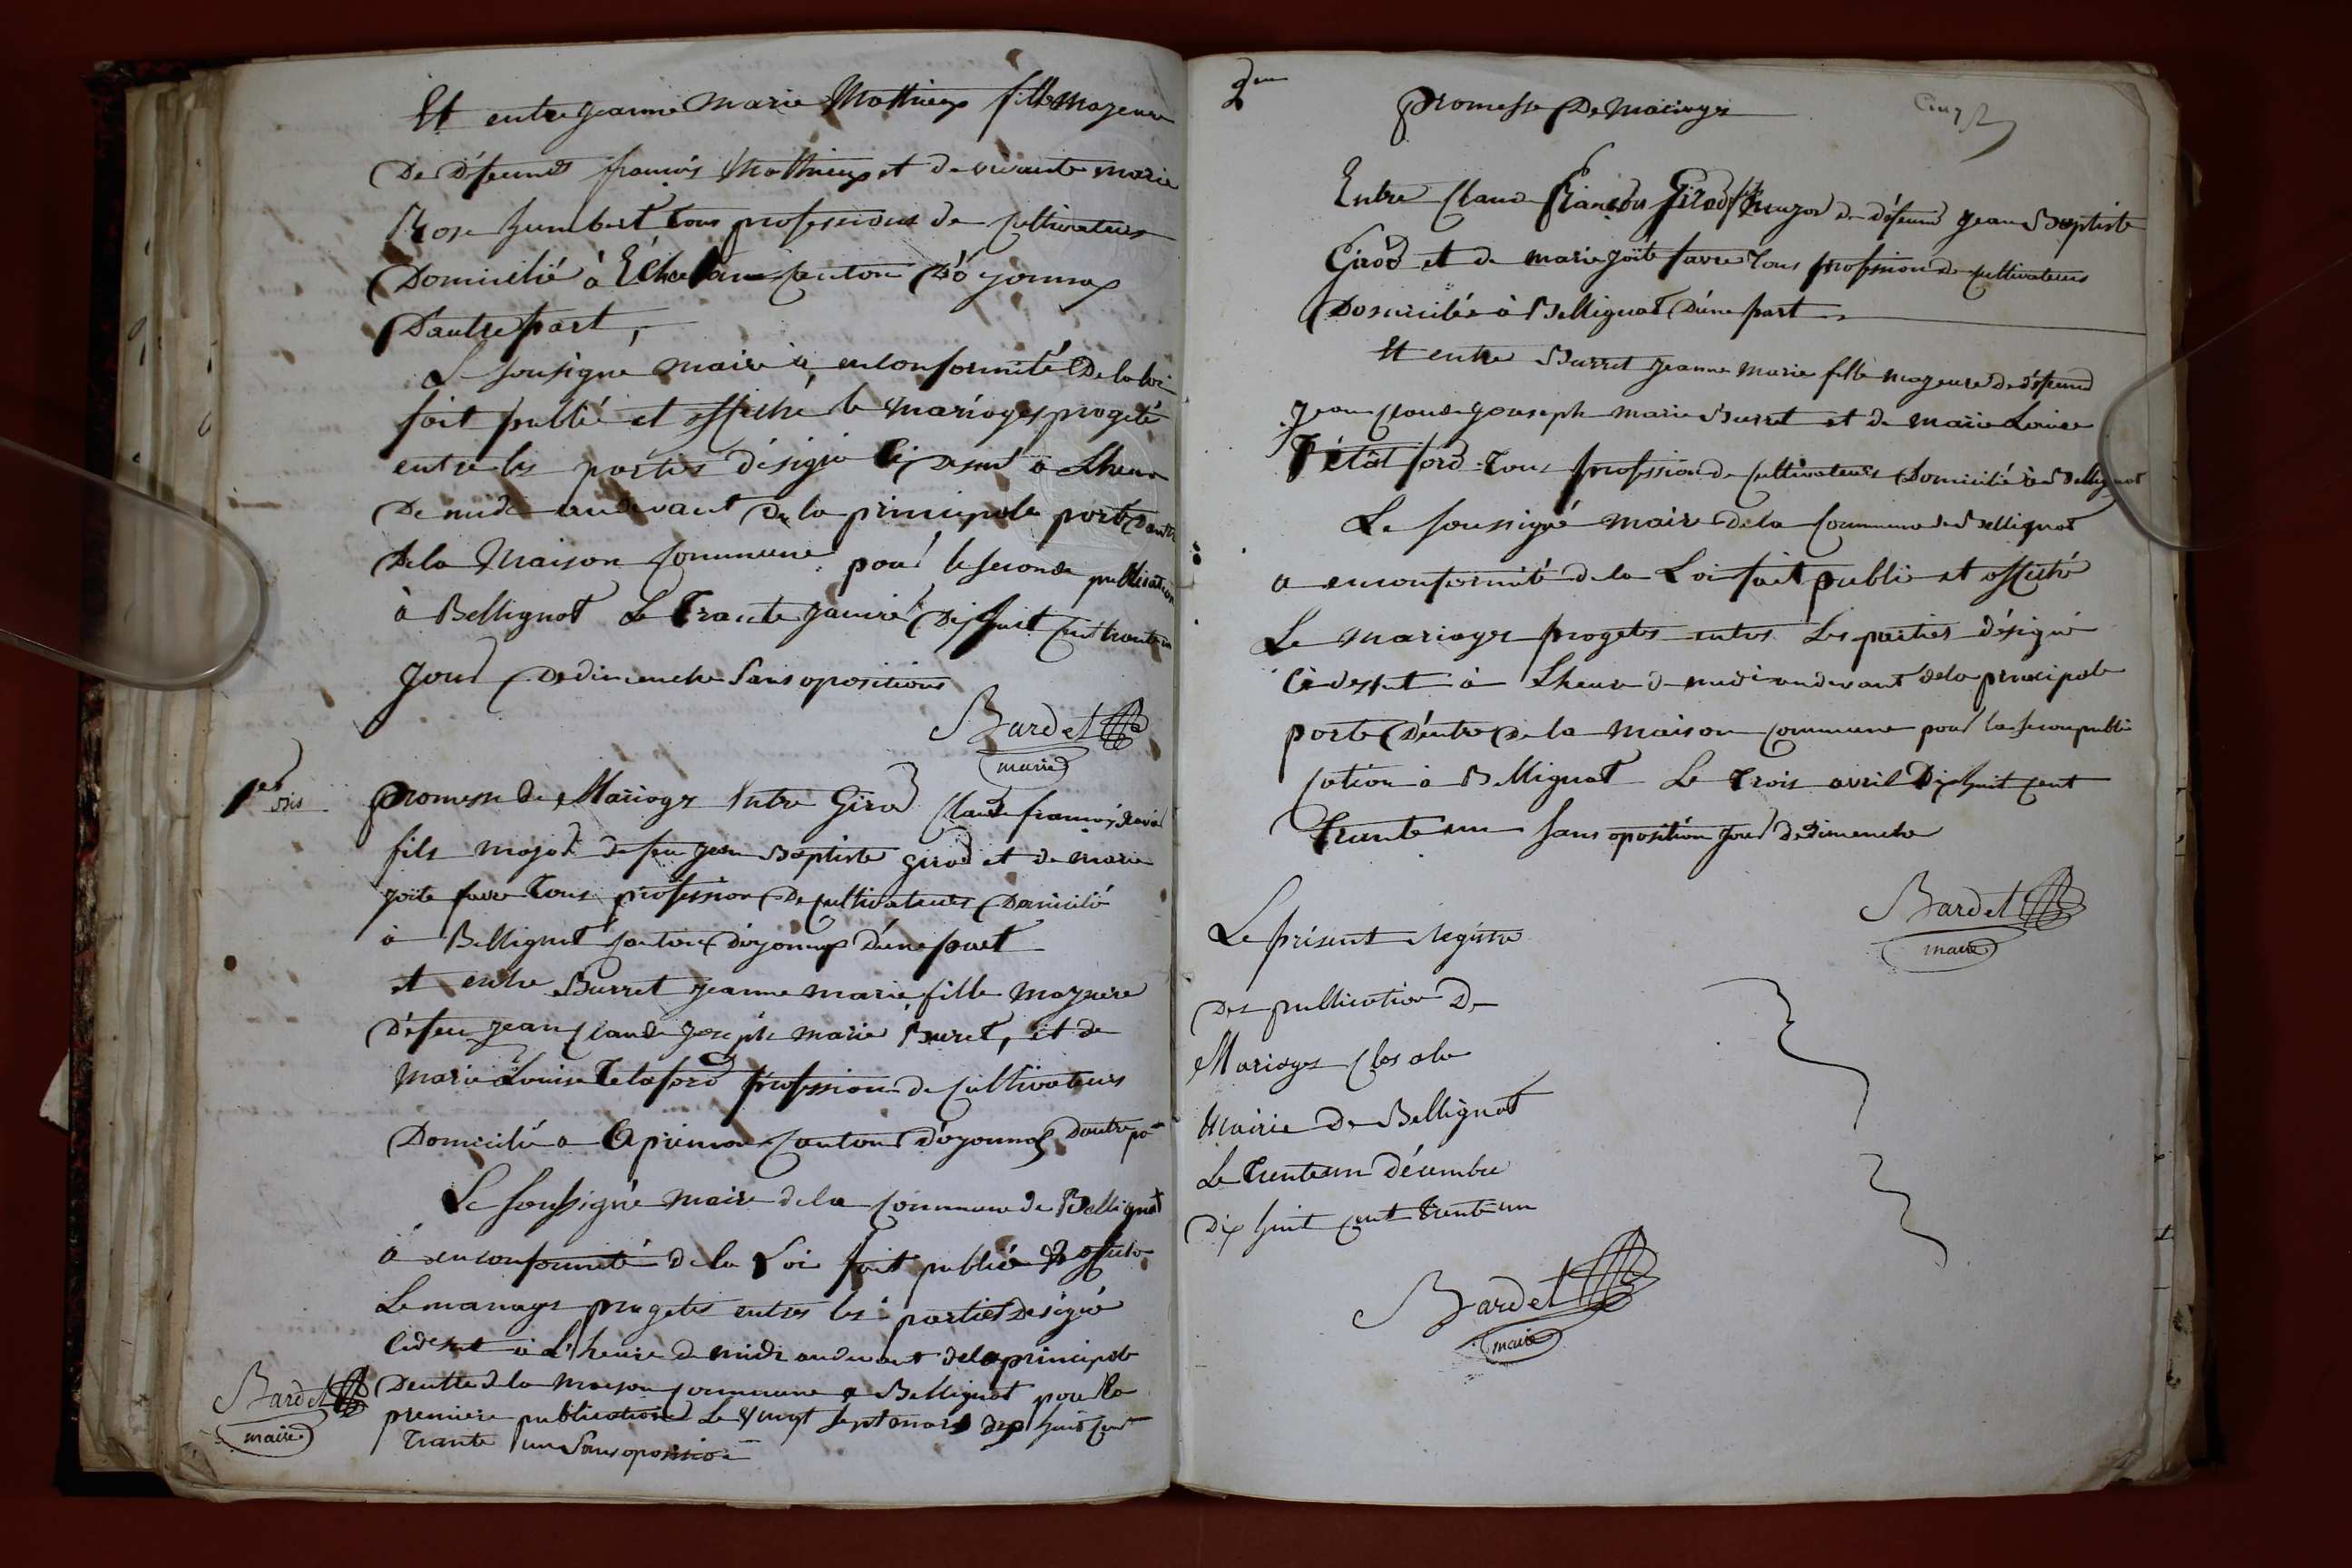 Et entre jeanne marie Mathieux fille mazeure
De Défeunt francois Mathieux et de vivante marie
Rose humbert tous professions de cultivateurs
Domicilié à Échalon canton D'ó yonnax
D'autre part,
Le sousigné maire a, en conformité De la loi
fait publié et affiché le mariages progeté
entre les parties désigné Ci Desut à Lheure
De midi audevant De la principale porte Dantre
De la Maison Commune pour la seconde publication
à Bellignat Le Trante janvié Dix huit cent trante un
jour De dimenche Sans opositions
Bardet
maire
1er
Promesse de Mariage Entre Girod Claude francois
fils major de feu jean Baptiste girod et de marie
joite favre Tous profession De cultivateurs Domicilié
à Bellignat canton d'oyonnax d'une part
et entre Burret jeanne marie fille mazuere
Défeu jean Claude joseph marie Buret, et de
Marie Louise Tetaford profession de cultivateurs
Domicilié a Apremon canton d'oyonnax Dautre part
Le Soussigné maire de la commune de Bellignat
à enconformité de la Loi fait publié et affiché
Le mariages progetés entres les parties Désigné
Cidesut à L'heure de midi audevant de la principale
Dentre de la maison commune a Bellignat pour la
premiere publication Le Vingt Sept mars dix huit cent
Trante un Sans oposition
Bardet
maire
2me
Promesse De Mariage
Cinq
Entre Claude François Girod fils muzor de défeunt jean Baptiste
Girod et de marie joite favre Tous profession de cultivateurs
Domiciliés à Bellignat D'une part
Et entre Burret jeanne marie fille mazeure de défeund
jean Claude jouseph marie Burret et de marie Louise
Tétaford Tous profession de cultivateurs Domicilié à Bellignat
Le Soussigné maire de la Commune de Bellignat
a enconformité de la Loi fait publié et affiché
Le mariages progetés entres Les parties désigné
Cidessut à Lheure de midi audevant dela principale
porte D'entre De la maison commune pour la secon publi
cation à Bellignat Le Trois avril Dix huit cent
Trante un Sans oposition jour de Dimenche
Bardet
maire
Le présent Registre
Des publication De
Mariages Clos a la
Mairie De Bellignat
Le Trente un Décembre
Dix huit cent Trente un
Bardet
maire